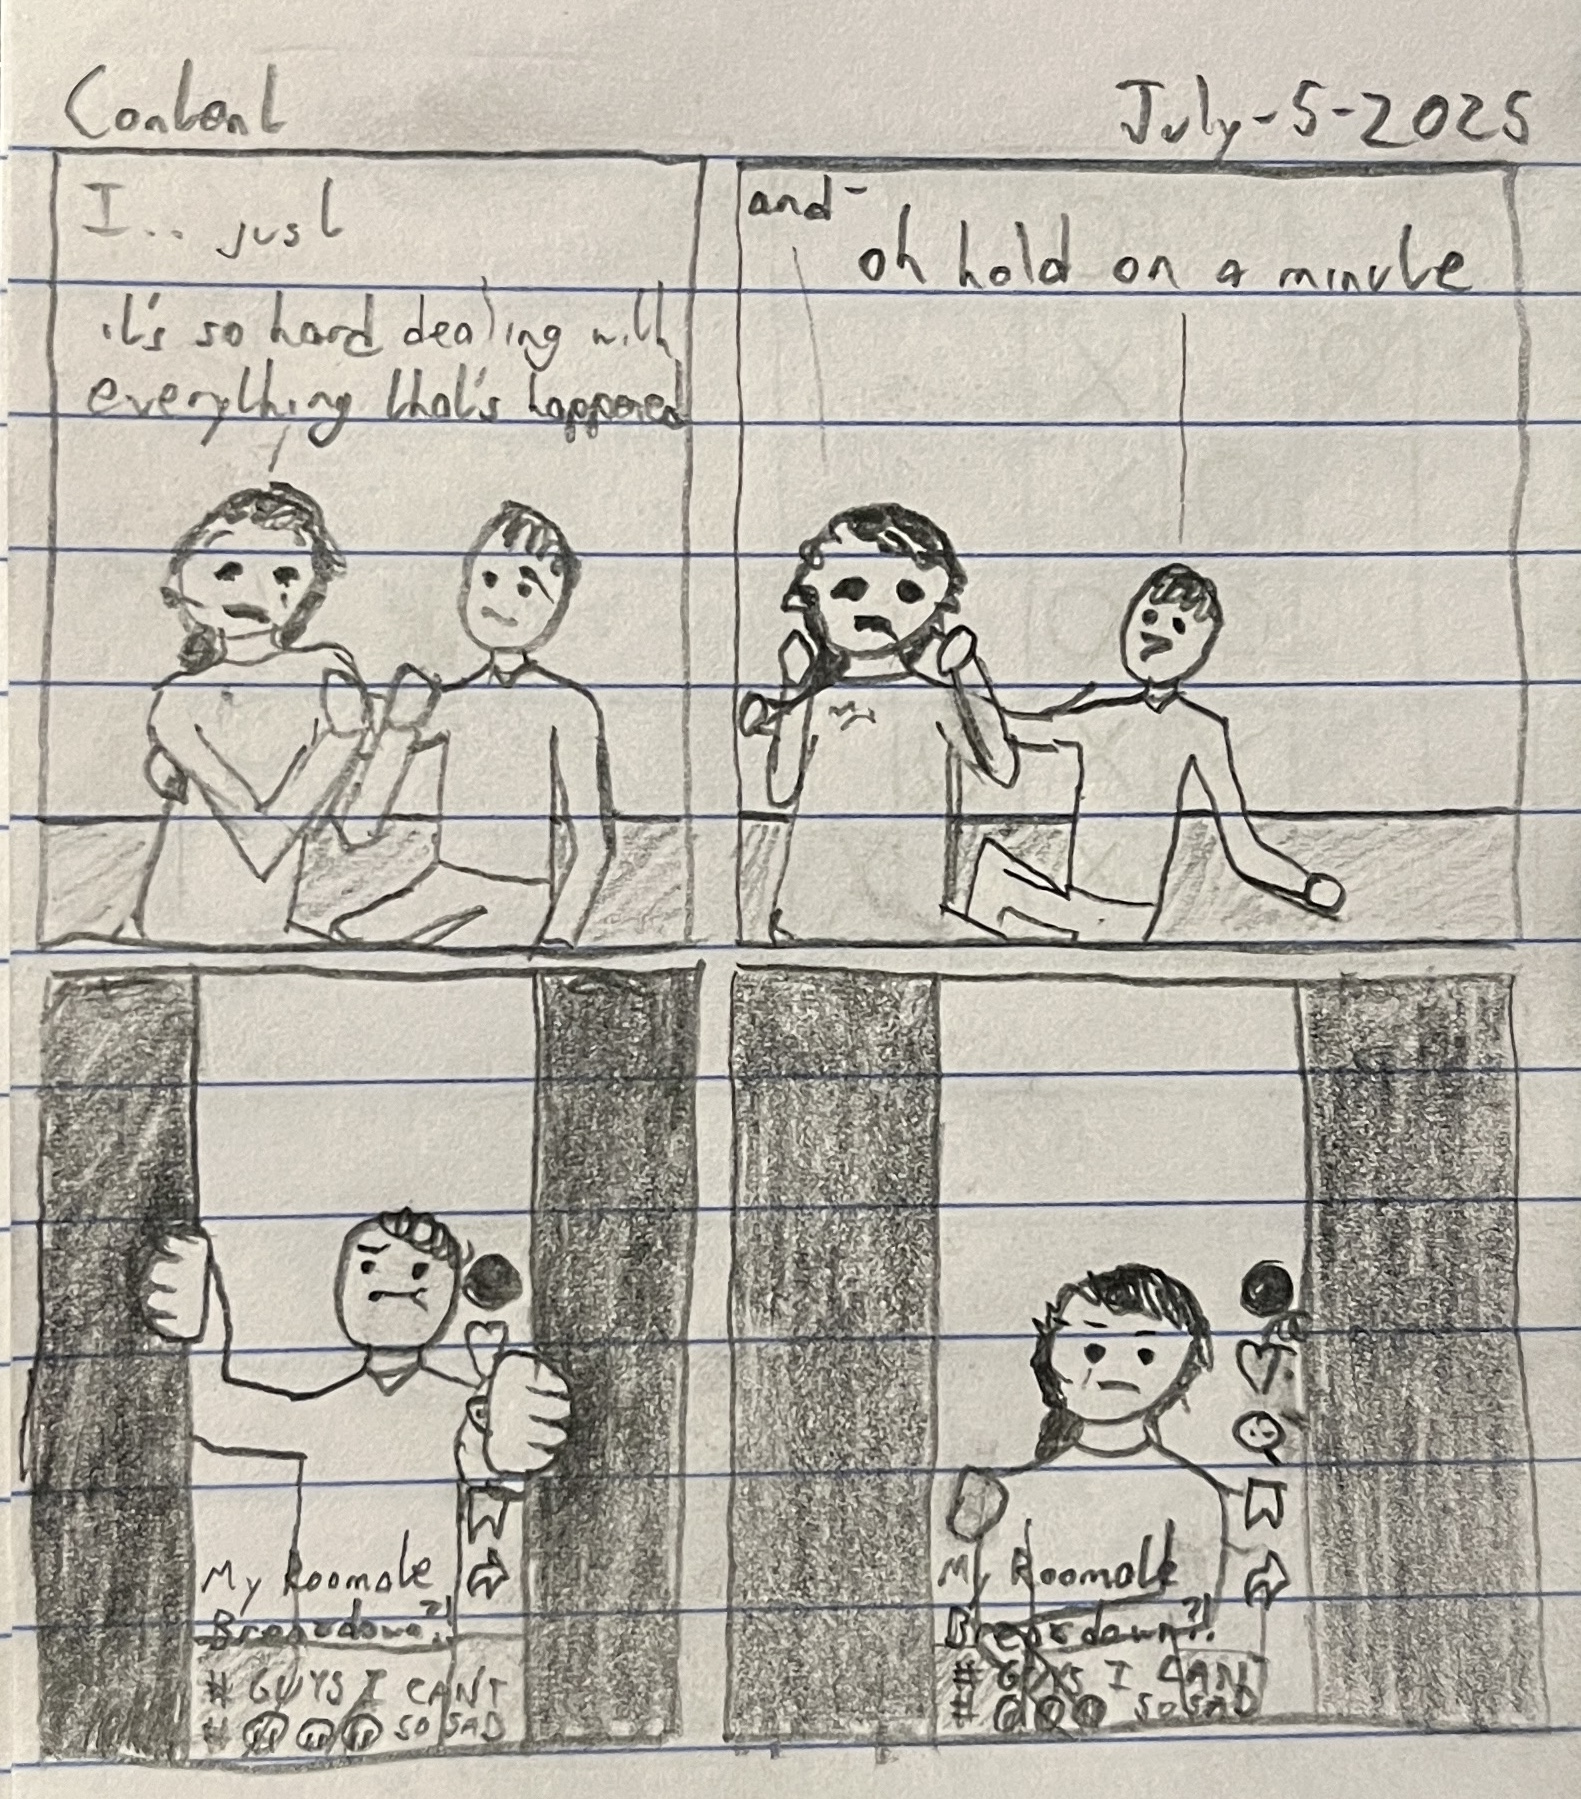 Content
July-5-2025
I.. just
it's so hard dealing with
everything that's happened
and-
oh hold on a minute
My Roomate
Breakdown?!
# GUYS I CANT
# SO SAD
My Roomate
Breakdown?!
# GUYS I CANT
# SO SAD